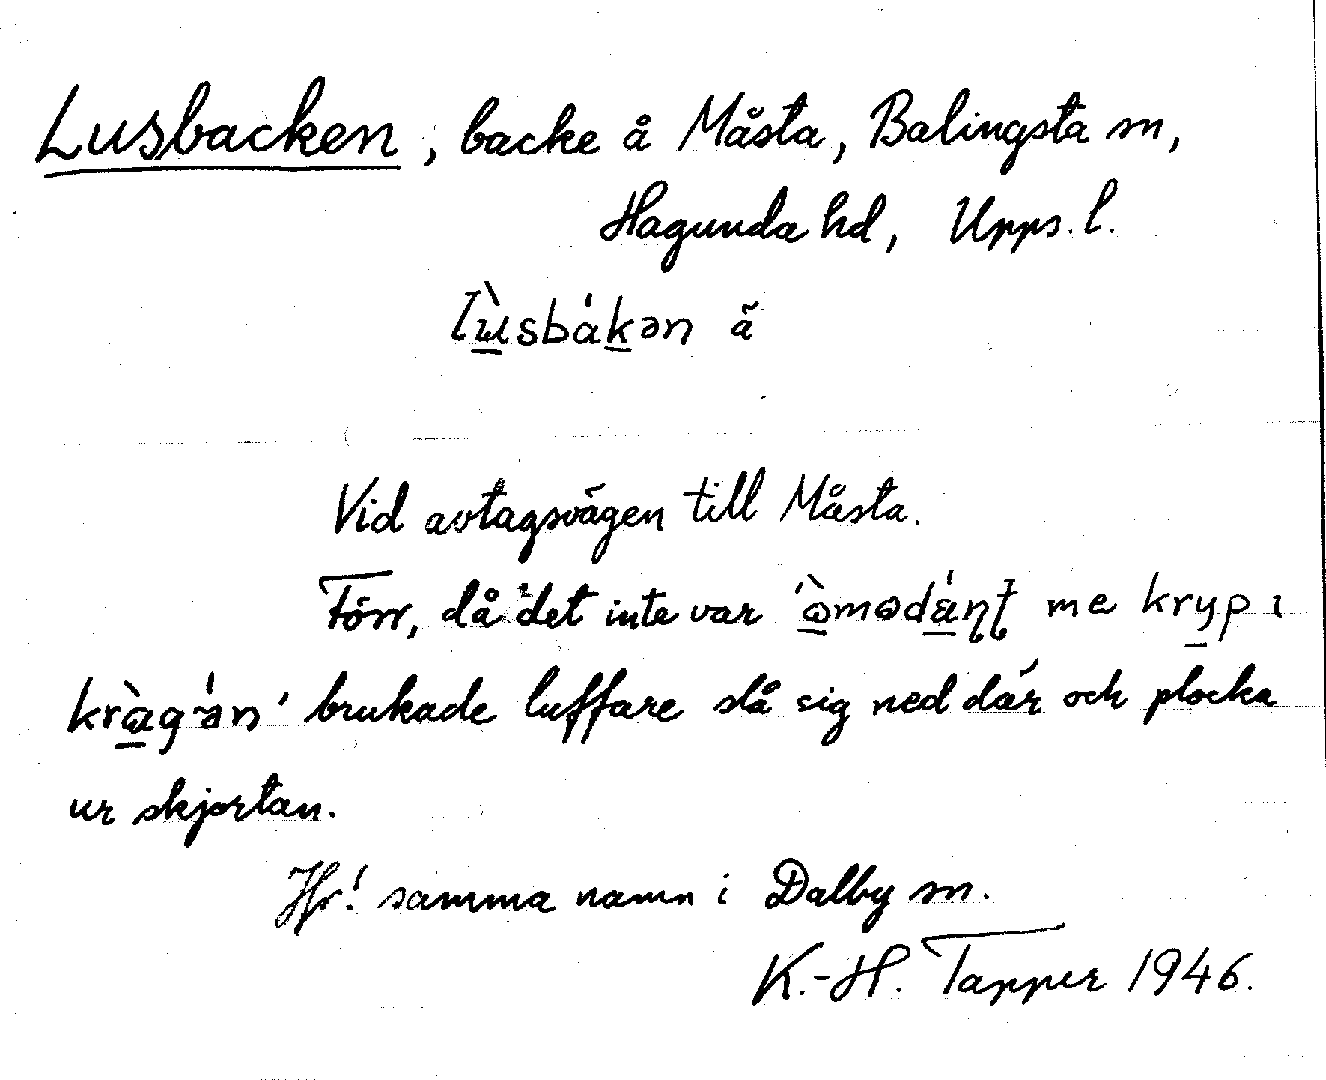 Lusbacken, backe å Måsta, Balingsta sn,
Hagunda hd, Upps. l.
lùsbákən ä̆
Vid avtagsvägen till Måsta.
Förr, då det inte var 'òmodä́ṇṭ me kryp ı
kràgán' brukade luffare slå sig ned där och plocka
ur skjortan.
Jfr! samma namn i Dalby sn.
K.-H. Tapper 1946.